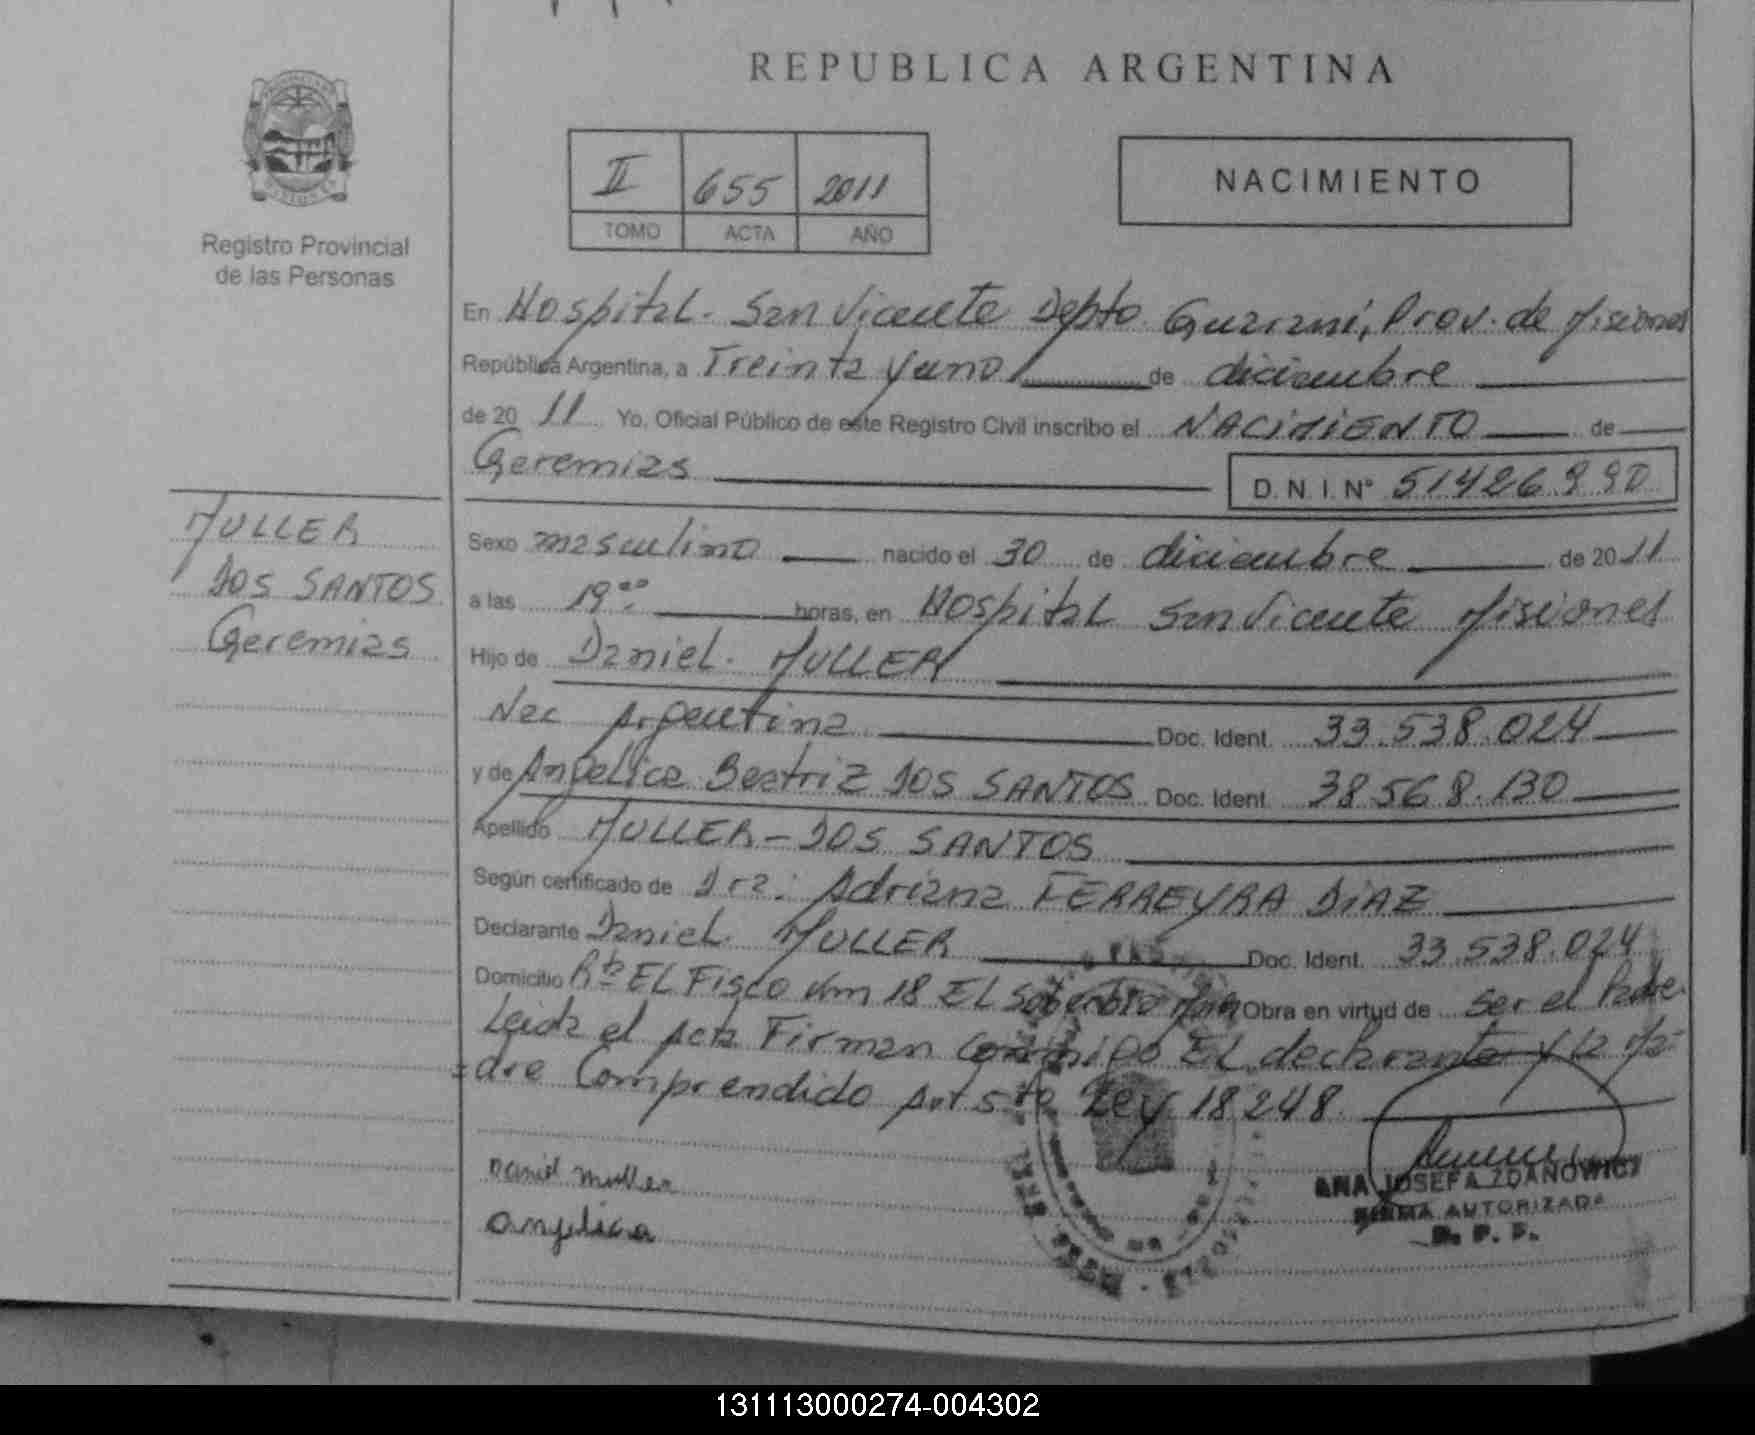 REPUBLICA ARGENTINA
II 655 2011
TOMO ACTA AÑO
NACIMIENTO
Registro Provincial
de las Personas
En Hospital. San Vicente Depto Guarani, Prov. de Misiones
República Argentina, a Treinta y uno de diciembre
de 20 11 Yo, Oficial Público de este Registro Civil inscribo el NACIMIENTO de
Geremias D.N.I. Nº 51426.990
MULLER
DOS SANTOS
Geremias
Sexo masculino nacido el 30 de diciembre de 20 11
a las 19 00 horas, en Hospital San Vicente Misiones
Hijo de Daniel. MULLER
Nac Argentina Doc. Ident. 33.538.024
y de Angelica Beatriz DOS SANTOS Doc. Ident. 38568.130
Apellido MULLER - DOS SANTOS
Según certificado de Dra: Adriana FERREYRA DIAZ
Declarante Daniel. MULLER Doc. Ident. 33.538.024
Domicilio Rta EL Fisco Km 18 EL Soberbio Obra en virtud de Ser el Padre
Leida el Acta Firman Conmigo EL declarante y la Ma=
=dre Comprendido Art 5to Ley 18248
Daniel Muller
Angelica
ANA JOSEFA ZDANOWICZ
FIRMA AUTORIZADA
131113000274-004302